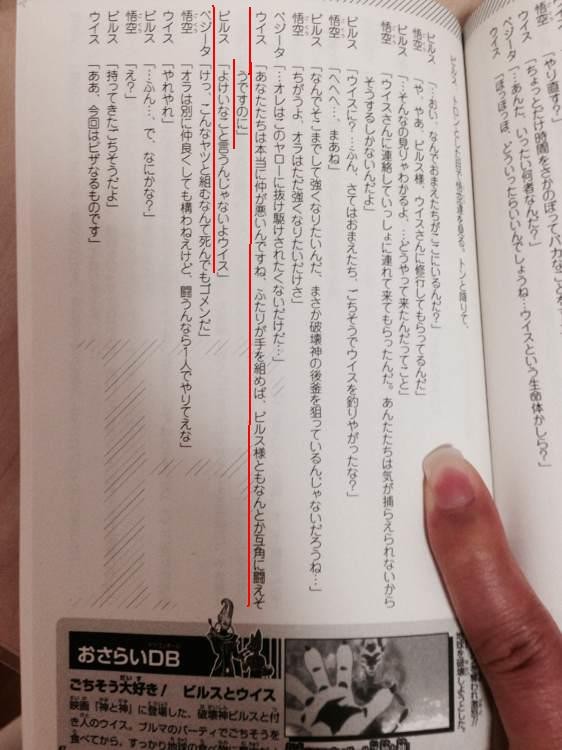 「やり直す？」
「ちょっとだけ時間をさかのぼってバカなことを
「…あんた、いったい何者なんだ？」
ウイス「ほっほっほ、どういったらいいんでしょうね…ウイスという生命体かしら？」
ビルス「…おい、なんでおまえたちがここにいるんだ？」
悟空「や、やあ、ビルス様、ウイスさんに修行してもらってるんだ」
ビルス「…そんなの見りゃわかるよ、…どうやって来たんだってこと」
悟空「ウイスさんに連絡していっしょに連れて来てもらったんだ。あんたたちは気が捕らえられないから
そうするしかないんだよ」
ビルス「ウイスに？…ふん、さてはおまえたち、ごちそうでウイスを釣りやがったな？」
悟空「へへへ…、まあね」
ビルス「なんでそこまでして強くなりたいんだ、まさか破壊神の後釜を狙っているんじゃないだろうね…」
悟空「ちがうよ、オラはただ強くなりたいだけさ」
ベジータ「…オレはこのヤローに抜け駆けされたくないだけだ…」
ウイス「あなたたちは本当に仲が悪いんですね、ふたりが手を組めば、ビルス様ともなんとか互角に闘えそ
うですのに」
ビルス「よけいなこと言うんじゃないよウイス」
ベジータ「けっ、こんなヤツと組むなんて死んでもゴメンだ」
悟空「オラは別に仲良くしても構わねえけど、闘うんなら1人でやりてえな」
ウイス「やれやれ」
ビルス「…ふん…、で、なにかな？」
悟空「え？」
ビルス「持ってきたごちそうだよ」
ウイス「ああ、今回はピザなるものです」
おさらいDB
ごちそう大好き！ ビルスとウイス
映画「神と神」に登場した、破壊神ビルスと付
き人のウイス。ブルマのパーティでごちそうを
地球を破壊しようとした。